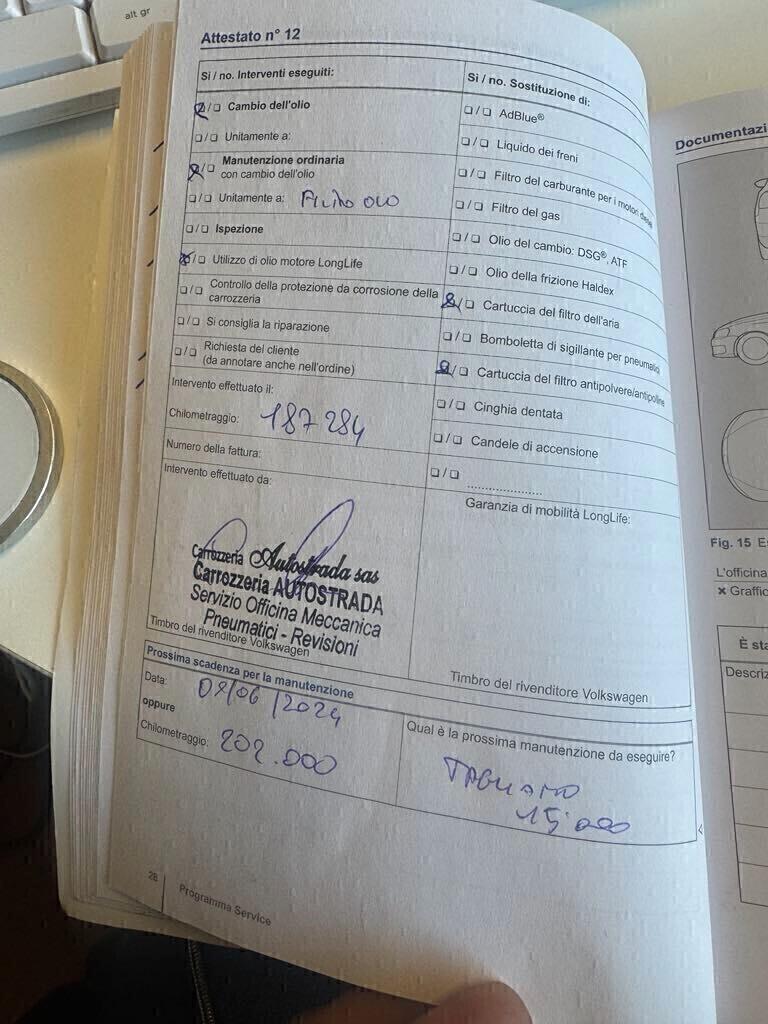 alt gr
Attestato n° 12
Si / no. Interventi eseguiti:
Cambio dell'olio
Unitamente a:
Manutenzione ordinaria
con cambio dell'olio
Unitamente a: Filtro olio
Ispezione
Utilizzo di olio motore LongLife
Controllo della protezione da corrosione della
carrozzeria
Si consiglia la riparazione
Richiesta del cliente
(da annotare anche nell'ordine)
Intervento effettuato il:
Chilometraggio: 187 284
Numero della fattura:
Intervento effettuato da:
Carrozzeria Autostrada sas
Carrozzeria AUTOSTRADA
Servizio Officina Meccanica
Pneumatici - Revisioni
Timbro del rivenditore Volkswagen
Si / no. Sostituzione di:
AdBlue®
Liquido dei freni
Filtro del carburante per i motori diesel
Filtro del gas
Olio del cambio: DSG®, ATF
Olio della frizione Haldex
Cartuccia del filtro dell'aria
Bomboletta di sigillante per pneumatici
Cartuccia del filtro antipolvere/antipolline
Cinghia dentata
Candele di accensione
Garanzia di mobilità LongLife:
Timbro del rivenditore Volkswagen
Prossima scadenza per la manutenzione
Data: /06/2024
oppure
Chilometraggio: 202.000
Qual è la prossima manutenzione da eseguire?
TAGLIANDO
15.000
28
Programma Service
Documentazi
Fig. 15 Es
L'officina
× Grafic
È sta
Descriz